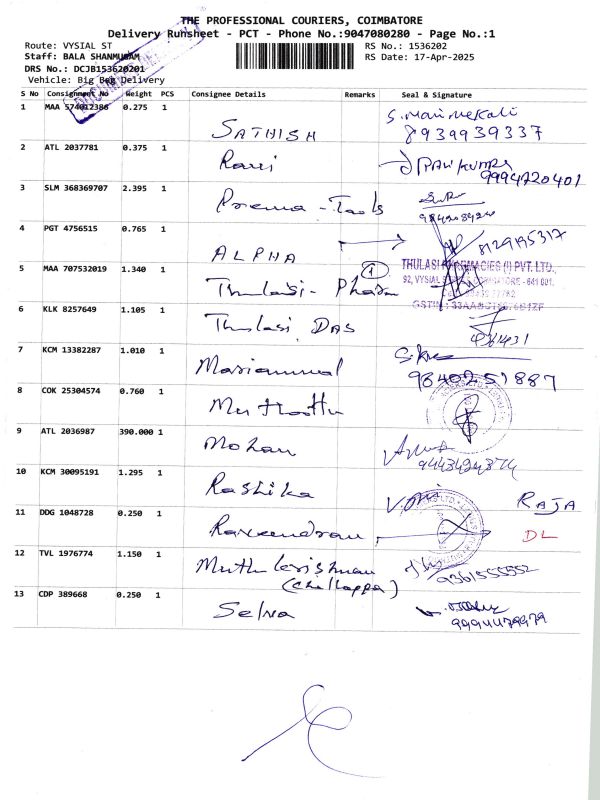 THE PROFESSIONAL COURIERS, COIMBATORE
Delivery Runsheet - PCT - Phone No.:9047080280 - Page No.:1
Route: VYSIAL ST
RS No.: 1536202
Staff: BALA SHANMUGAM
RS Date: 17-Apr-2025
DRS No.: DCJB153620201
Vehicle: Big Bag Delivery
S No Consignment No Weight PCS Consignee Details Remarks Seal & Signature
1 MAA 574012386 0.275 1
SATHISH
8939939337
2 ATL 2037781 0.375 1
Ravi
9994720401
3 SLM 368369707 2.395 1
Prema - Tools
4 PGT 4756515 0.765 1
ALPHA
8129195317
5 MAA 707532019 1.340 1
1
Thulasi - Pharm
THULASI PHARMACIES (I) PVT. LTD.,
92, VYSIAL
- 641 001.
6 KLK 8257649 1.105 1
Thulasi DAS
7 KCM 13382287 1.010 1
Mariammal
9840251887
8 COK 25304574 0.760 1
Muthoottu
9 ATL 2036987 390.000 1
Mohan
10 KCM 30095191 1.295 1
Rashika
RAJA
11 DDG 1048728 0.250 1
Raveendran
DL
12 TVL 1976774 1.150 1
Muthukrishnan
(Chellappa)
9361555552
13 CDP 389668 0.250 1
Selva
9994479979